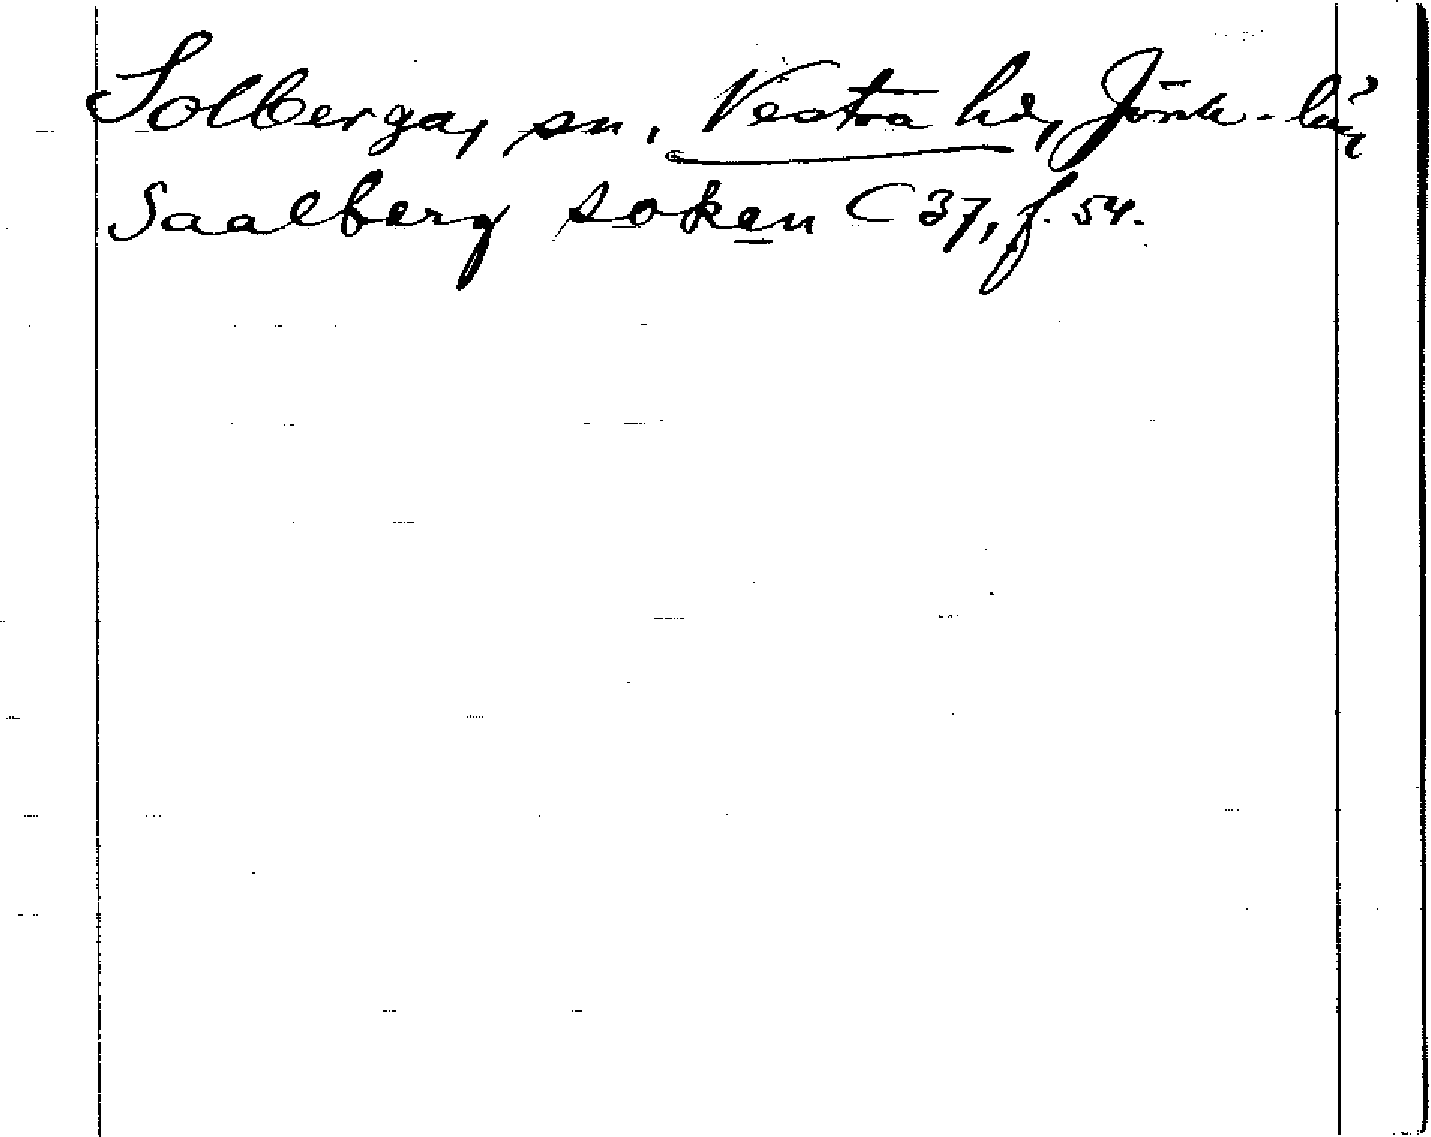 Solberga, sn, Vestra hd, Jönk. län
Saalberg soken C 37, f. 54.